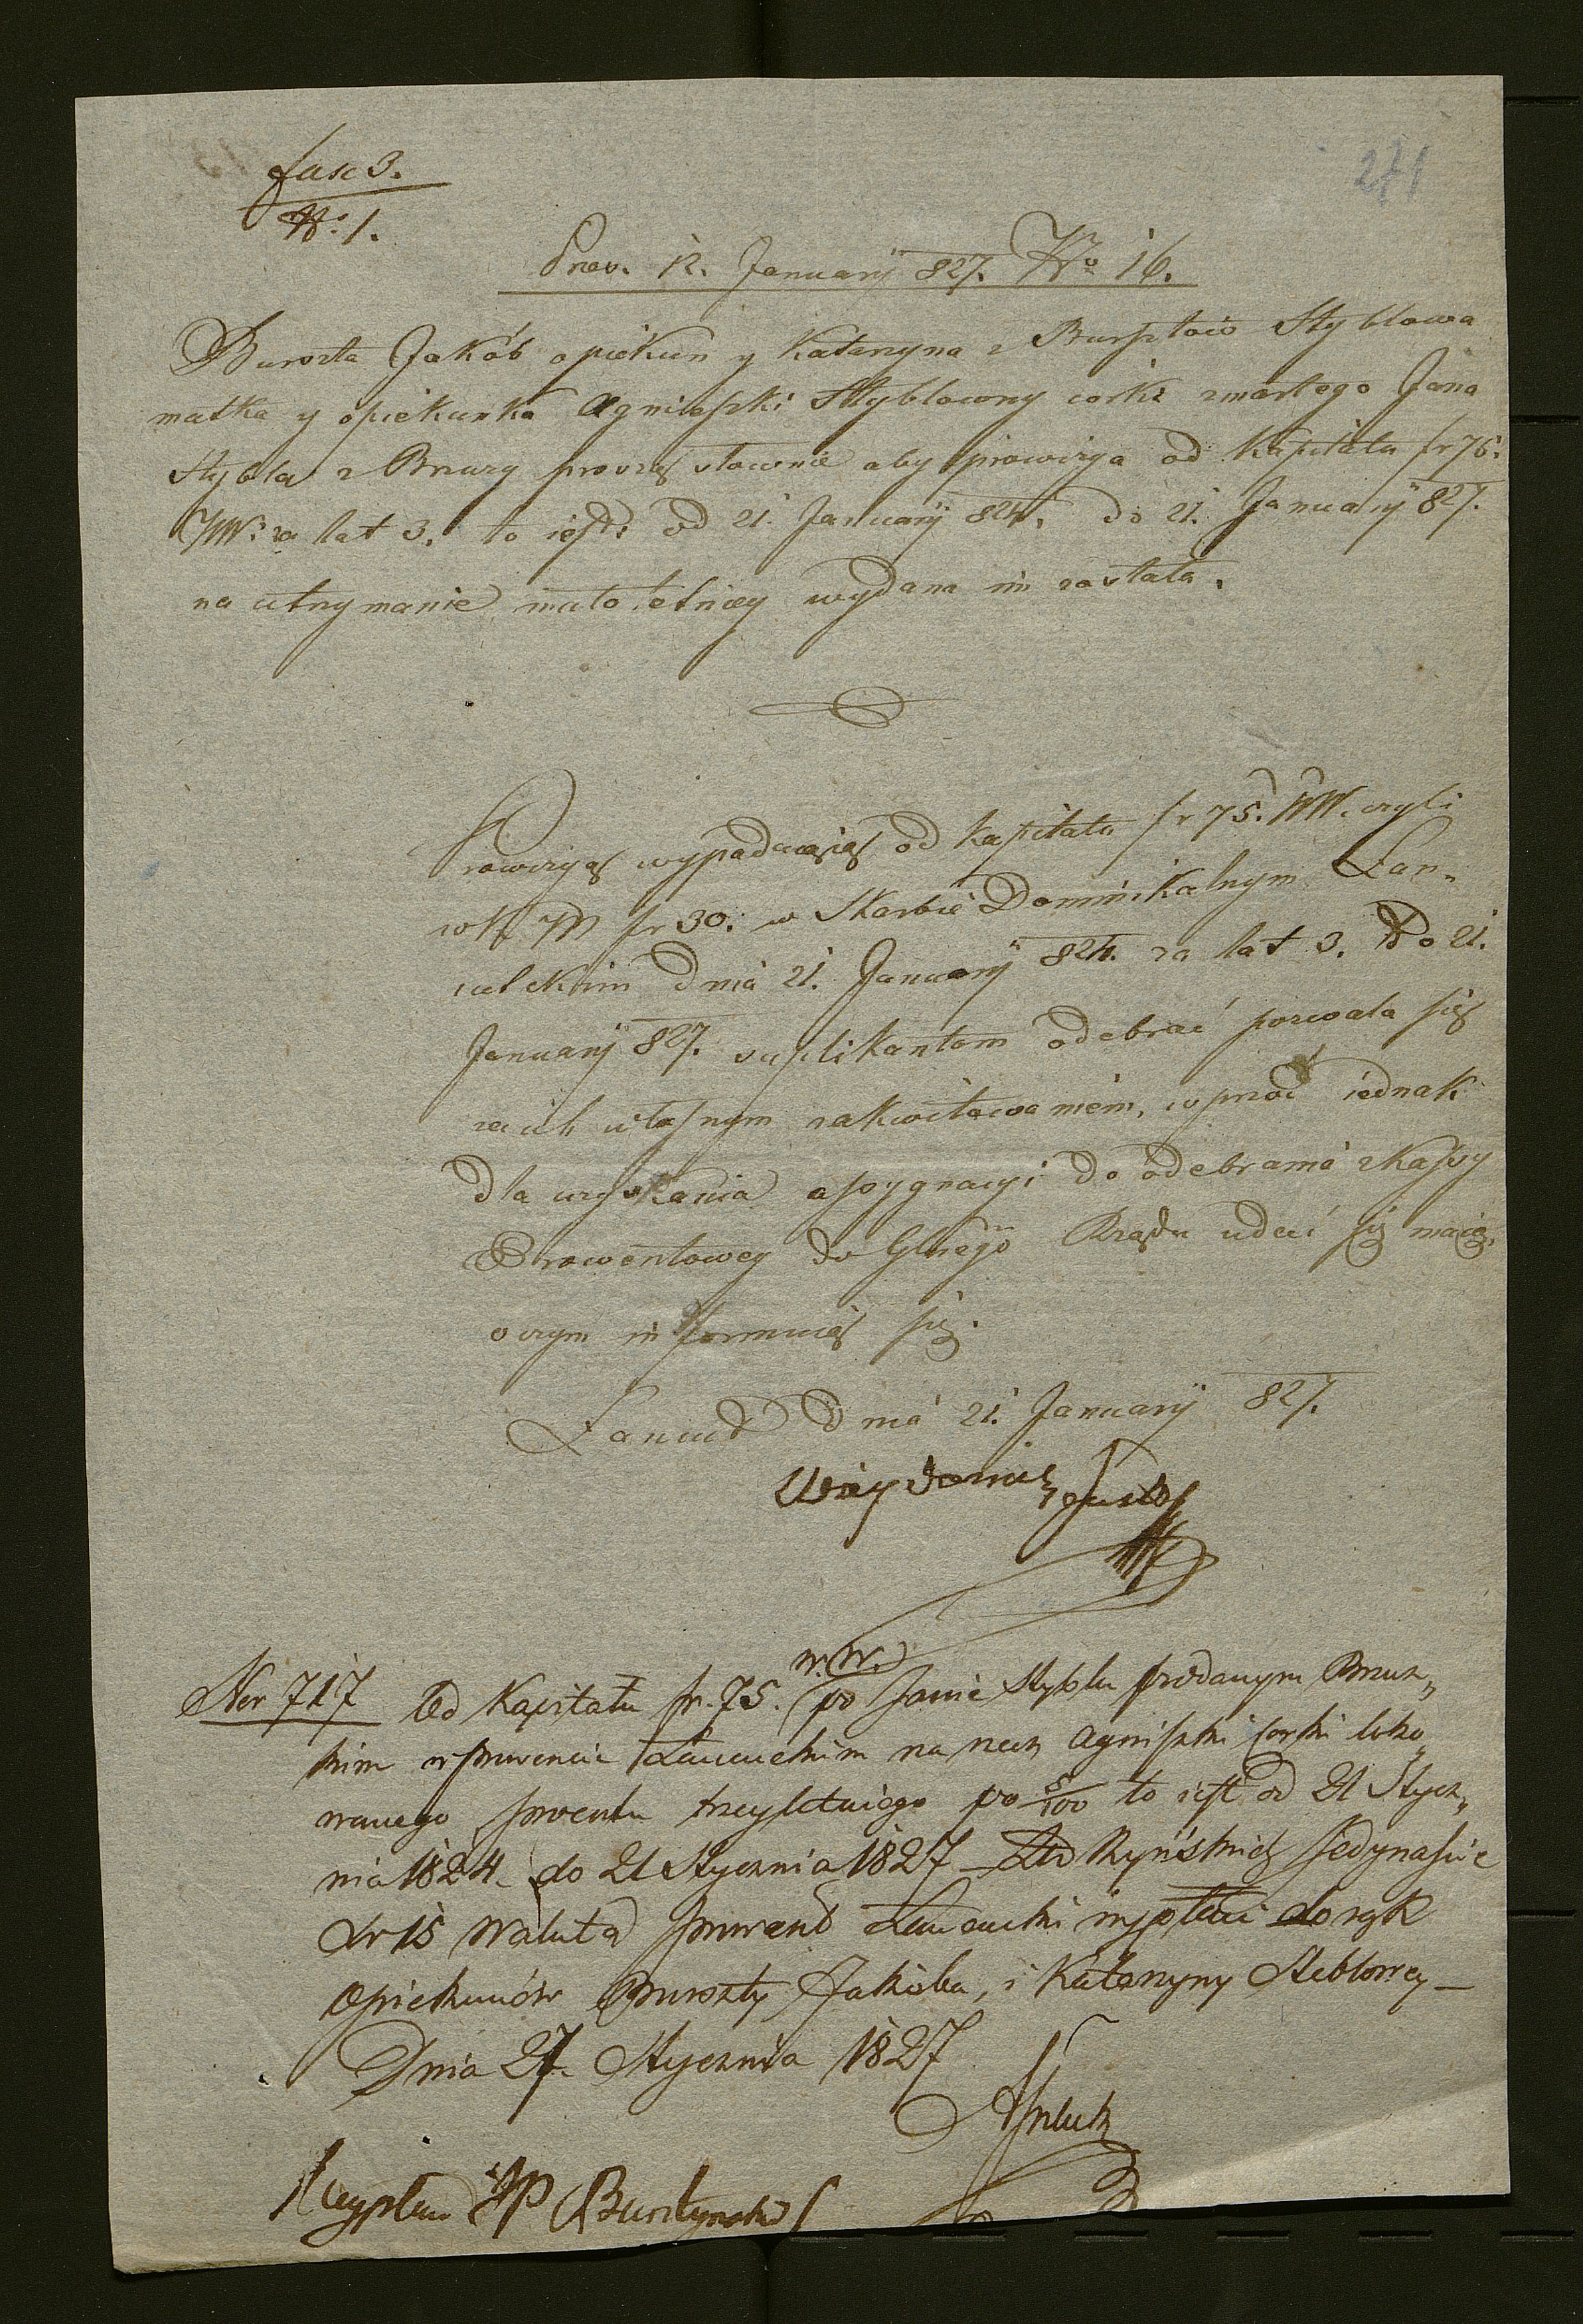 fasc 3.
No. 1.
271
Prov. 12. Januarij 827. No 16.
Burszta Jakób opiekun y Katarzyna z Bursztów Styblowa
matka y opiekunka Agnieszki Styblowny corki zmarłego Jana
Stybla z Brzuzy proszą aby prowizya od kapitału fr 75.
WW. za lat 3. to iest: od 21. Januarij 824. do 21. Januarij 827.
na utrzymanie małoletniey wydana im została.
Prowizyą wypadaiącą od kapitału fr 75. WW. czyli
w K. M fr 30. w Skarbie Dominikalnym Łan„
cutskim dnia 21. Januarij 824. za lat 3. do 21.
Januarij 827. suplikantom odebrać pozwala się
za ich własnym zakwitowaniem, wprzód iednak
dla uzyskania assygnacyi do odebrania z Kassy
Prowentowey do Głnego Rządu udać się maią,
o czym informuią się.
Łancut dnia 21. Januarij 827.
Nor 717 Od Kapitału fr. 75. w. w. po Janie Styblu poddanym Brzuz„
kim w prowencie Łancuckim na rzecz Agniszki corki loko„
wanego procentu trzyletniego po 5/100 to iest od 21 Stycz„
nia 1824. do 21 Stycznia 1827 Ryńskich Jedynaście
xr 15 Walutą prowent Łancucki wypłaci do rąk
Opiekunów Burszty Jakóba, i Katarzyny Steblowey —
Dnia 27. Stycznia 1827